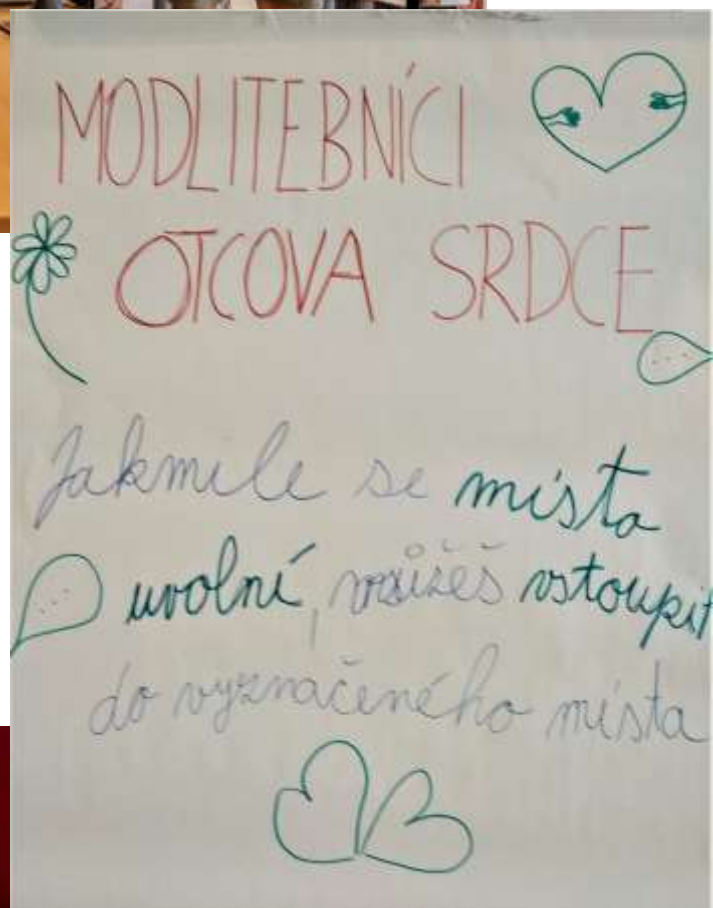 MODLITEBNÍCI
OTCOVA SRDCE
Jakmile se místa
uvolní, můžeš vstoupit
do vyznačeného místa